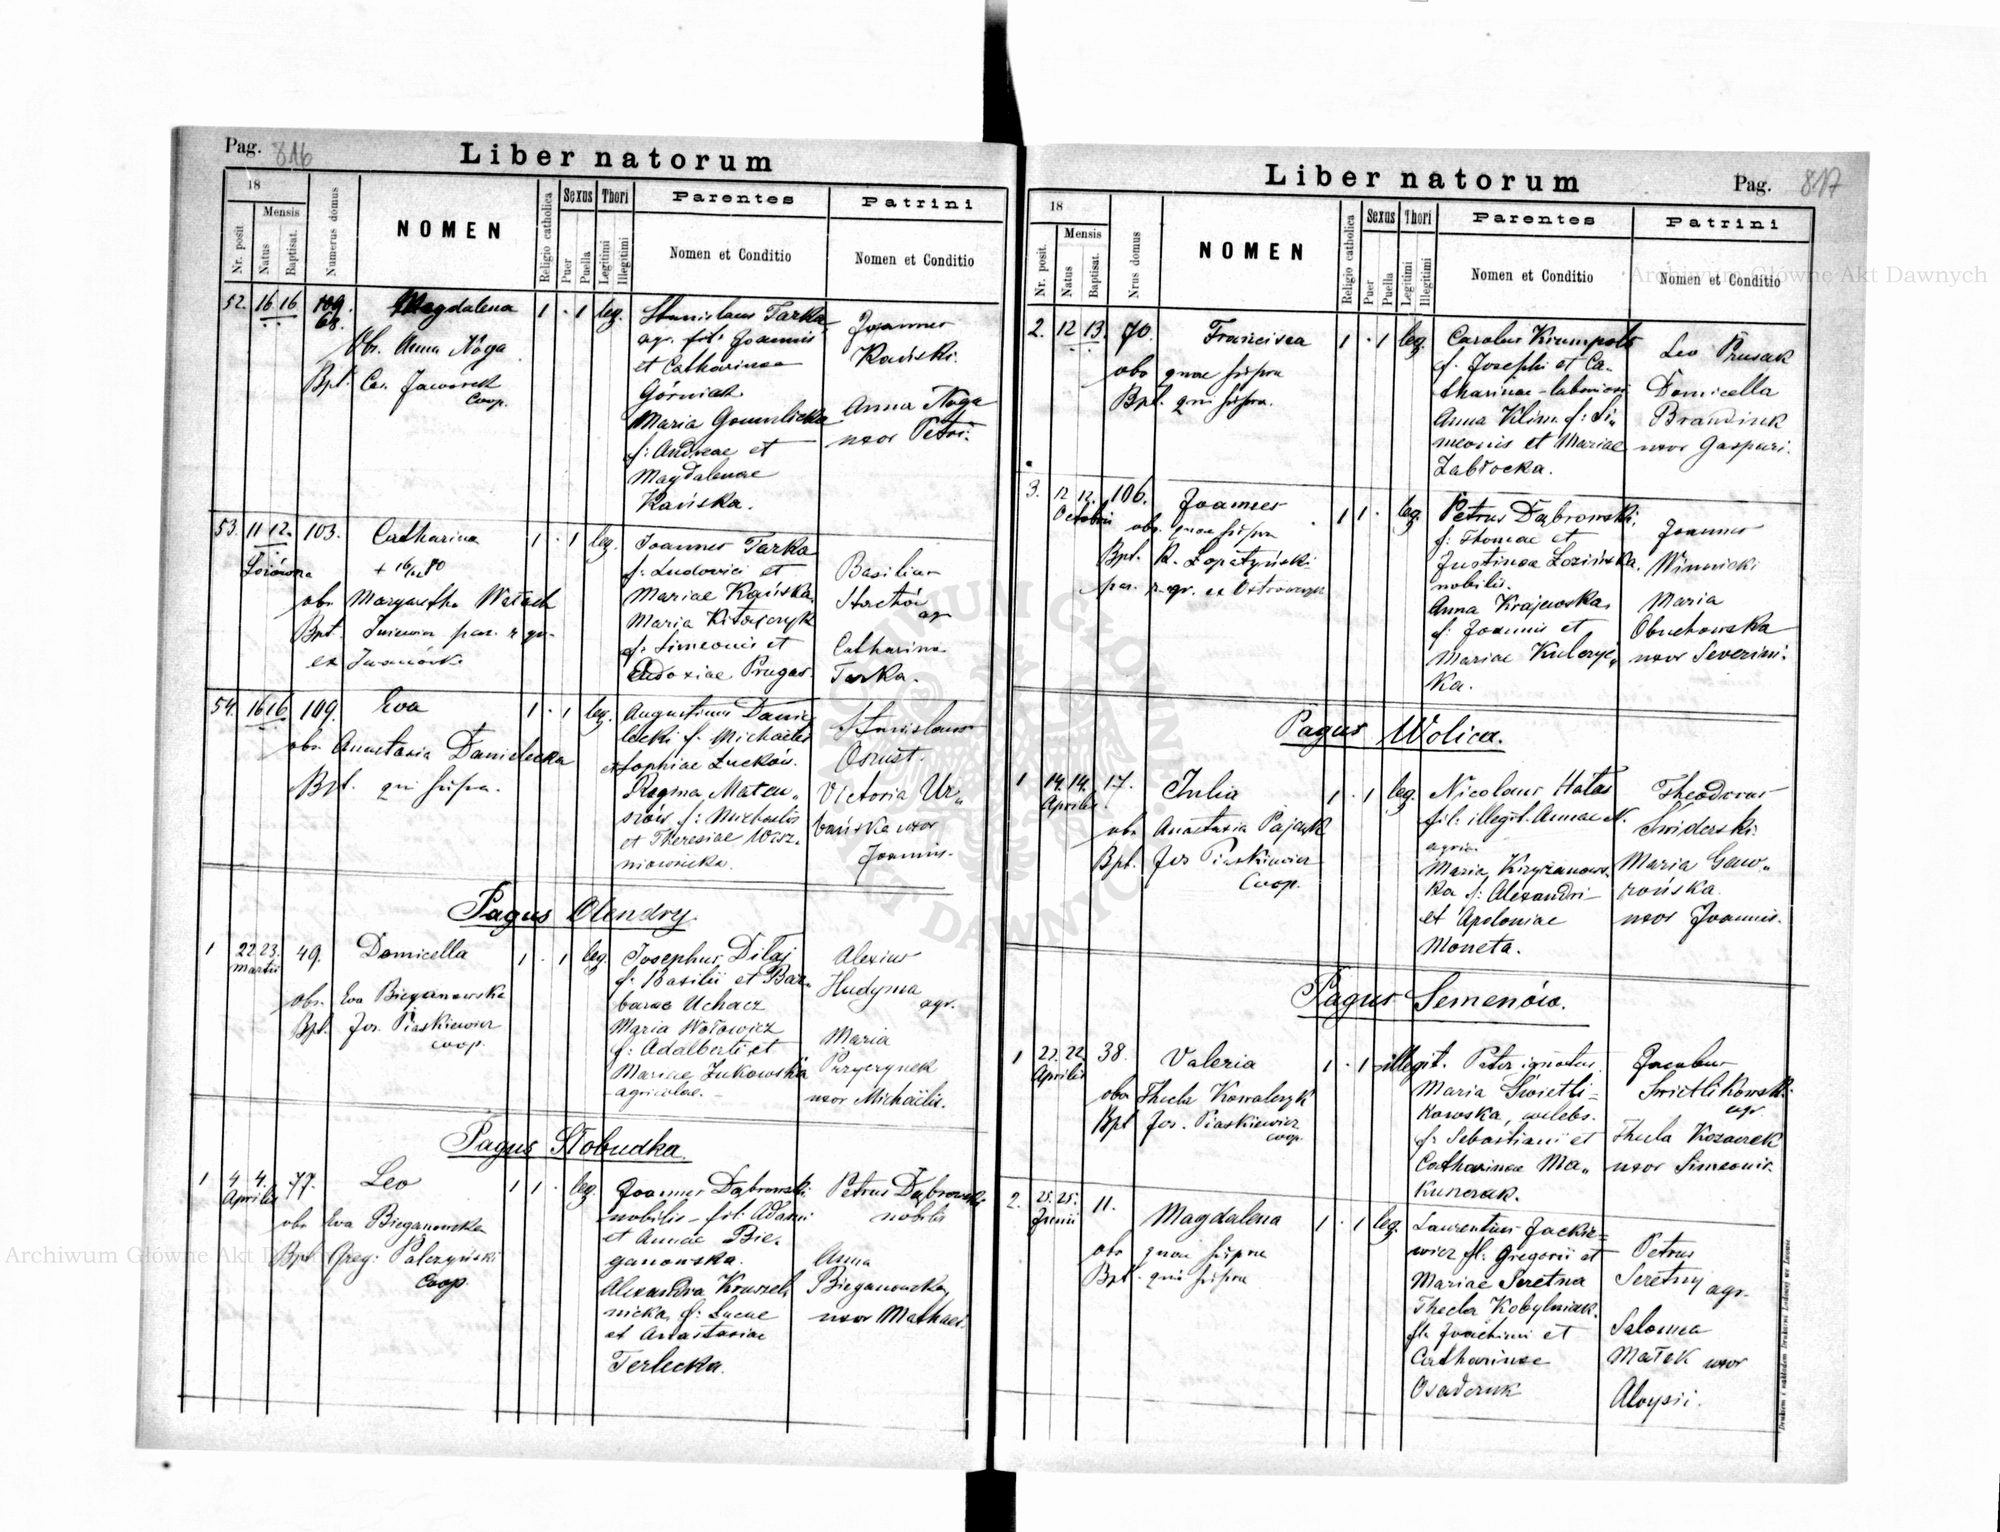 Pag. 816
Liber natorum
18
Mensis
Nr. posit.
Natus
Baptisat.
Numerus domus
NOMEN
Religio catholica
Sexus
Puer
Puella
Thori
Legitimi
Illegitimi
Parentes
Nomen et Conditio
Patrini
Nomen et Conditio
52. 16 16 109. Magdalena 1 · 1 leg.
68.
Obs. Anna Noga
Bpt. Jaworek
Coop.
Stanislaus Tarka
agr. fil. Joannis
et Catharinae
Górniak
Maria
f. Andreae et
Magdalenae
Kańska.
Joannes
Kański.
Anna Noga
uxor Petri.
53. 11 12. 103. Catharina 1 · 1 leg.
obs. Margaretha Wałach
Bpt. par. r. gr.
ex Iwanówki
Joannes Tarka
f. Ludovici et
Mariae Kańska.
Maria Kitajczyk
f. Simeonis et
Eudoxiae Prugar.
Basilius
agr.
Catharina
Tarka.
54. 16 16 109. Eva 1 · 1 leg.
obs. Anastasia Danielecka
Bpt. qui supra.
Augustinus Danie
lecki f. Michaelis
et Sophiae
Regina Mateu„
szów f. Michaelis
et Theresiae Wisz„
niowiecka.
Stanislaus
Osiust.
Victoria Ur„
bańska uxor
Joannis.
Pagus Olendry.
1 22. 23. 49. Domicella 1 · 1 leg.
Martii
obs. Eva Bieganowska
Bpt. Jos. Piaskiewicz
coop.
Josephus Dilaj
f. Basilii et Bar„
barae Uchacz
Maria Wołowicz
f. Adalberti et
Mariae Żukowska
agricolae.
Alexius
Hudyma
agr.
Maria
Przyczynek
uxor Michaëlis.
Pagus Słobudka.
1 4 4. 77. Leo 1 1 · leg.
Aprilis
obs. Eva Bieganowska
Bpt. Greg. Palczyński
Coop.
Joannes Dąbrowski
nobilis – fil. Adami
et Annae Bie-
ganowska.
Alexandra Kruszel„
nicka, f. Lucae
et Anastasiae
Terlecka.
Petrus Dąbrowski
nobilis
Anna
Bieganowska,
uxor Mathaei.
Liber natorum
Pag. 817
18
Mensis
Nr. posit.
Natus
Baptisat.
Nrus domus
NOMEN
Religio catholica
Sexus
Puer
Puella
Thori
Legitimi
Illegitimi
Parentes
Nomen et Conditio
Patrini
Nomen et Conditio
2. 12 13. 70. Francisca 1 · 1 leg.
obs quae supra
Bpt. qui supra.
Carolus Krumpolc
f. Josephi et Ca-
tharinae –
Anna Klim. f. Si„
meonis et Mariae
Zabłocka.
Leo Prusak
Domicella
uxor Gaspari.
3. 12 12. 106. Joannes 1 1 · leg.
Octobris
obs. quae supra
Bpt. R. Łopatyński
par. r. gr. ex
Petrus Dąbrowski
f. Thomae et
Justinae Łozińska.
nobilis.
Anna Krajewska,
f. Joannis et
Mariae
ka.
Joannes
Winnicki
Maria
Obuchowska
uxor Severini.
Pagus Wolica.
1 14. 14. 17. Julia 1 · 1 leg.
Aprilis.
obs Anastasia Pajączk
Bpt. Jos Piaskiewicz
Coop.
Nicolaus Hałas
fil. illegit. Annae et N.
agric.
Maria Kryżanows„
ka f. Alexandri
et Apoloniae
Moneta.
Theodorus
Świderski.
Maria Gaw„
rońska
uxor Joannis.
Pagus Semenów.
1 22. 22. 38. Valeria 1 · 1 illegit.
Aprilis
obs Thecla Kowalczyk
Bpt Jos. Piaskiewicz
coop.
Pater ignotus.
Maria Świetli=
kowska, caelebs.
f. Sebastiani et
Catharinae Ma„
Jacobus
Świetlikowski
agr.
Thecla Kozaczek
uxor Simeonis.
2. 25. 25. 11. Magdalena 1 · 1 leg.
Junii
obs quae supra
Bpt. qui supra
Laurentius Jackie=
wicz fil. Gregorii et
Mariae Seretna
Thecla Kobylniak
fil. Joachimi et
Catharinae
Osadczuk
Petrus
Seretny agr.
Salomea
Małek uxor
Aloysii.
Archiwum Główne Akt Dawnych
Archiwum Główne Akt Dawnych
ARCHIWUM GŁÓWNE AKT DAWNYCH